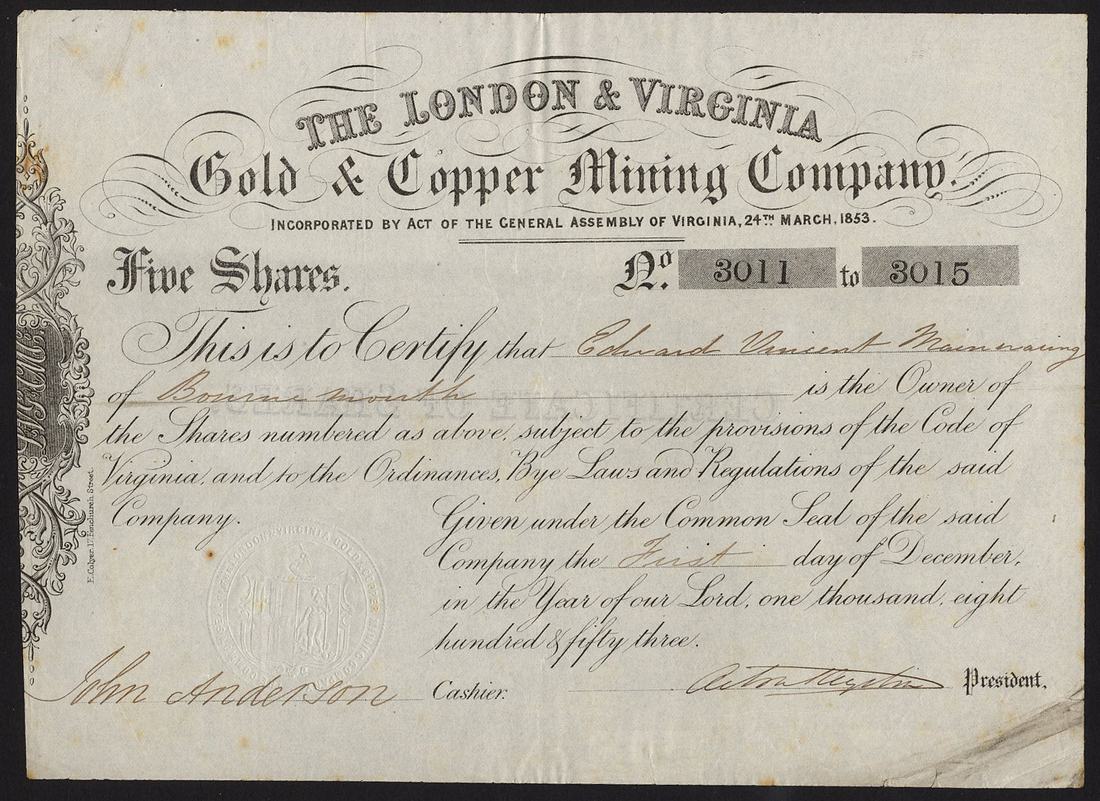 THE LONDON & VIRGINIA
Gold & Copper Mining Company.
INCORPORATED BY ACT OF THE GENERAL ASSEMBLY OF VIRGINIA, 24TH MARCH, 1853.
Five Shares. No. 3011 to 3015
This is to Certify that Edward Vincent Mainwaring
of Bournemouth is the Owner of
CERTIFICATE OF SHARES.
the Shares numbered as above, subject to the provisions of the Code of
Virginia, and to the Ordinances, Bye Laws and Regulations of the said
Company. Given under the Common Seal of the said
Company the First day of December,
in the Year of our Lord, one thousand, eight
hundred & fifty three.
John Anderson Cashier. President.
E. Colyer. 17 Fenchurch Street.